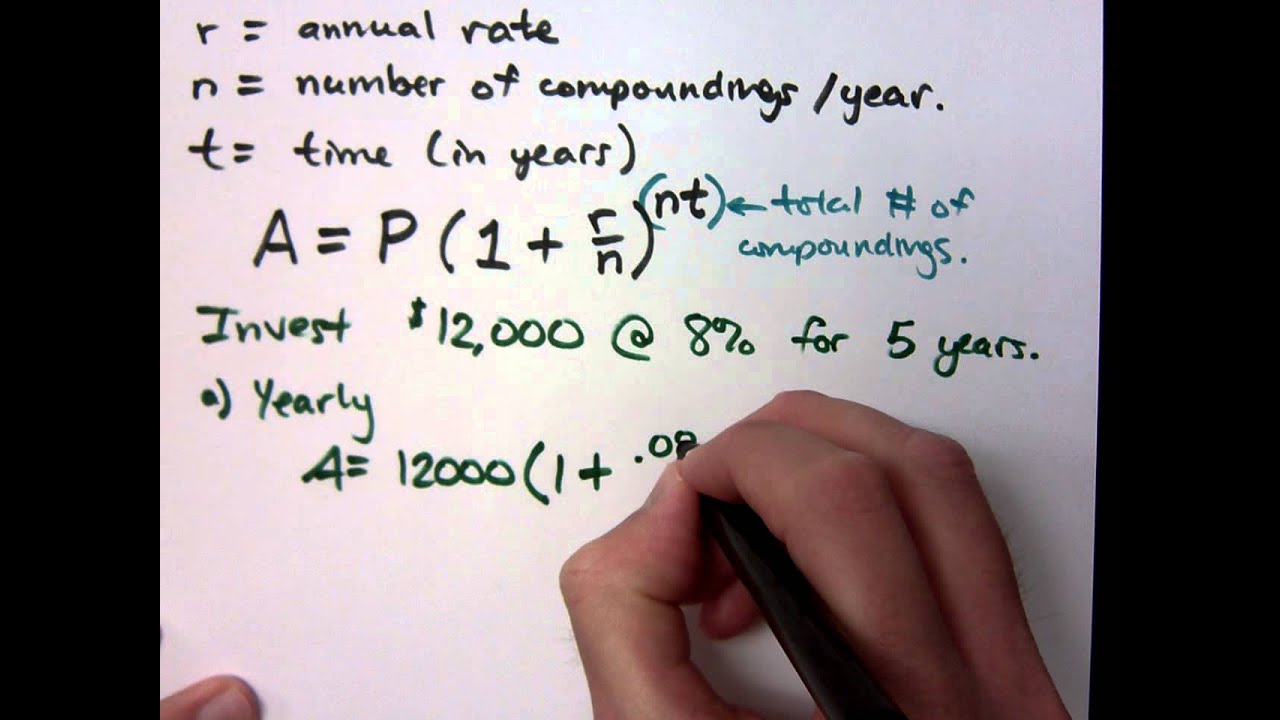 r = annual rate
n = number of compoundings /year.
t = time (in years)
A = P (1 + r/n)^(nt) ← total # of
compoundings.
Invest $12,000 @ 8% for 5 years.
a) Yearly
A = 12000 (1 + .08